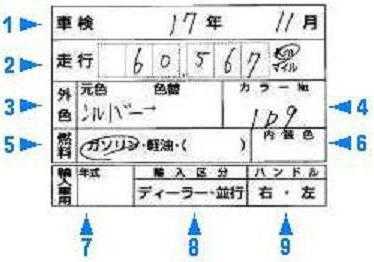 1 車検 17年 11月
2 走行 60,567 キロ マイル
3 外色 元色 色替 シルバー
カラーNo. 1D9 4
5 燃料 ガソリン・軽油・( )
内装色 6
輸入車用 年式 輸入区分 ハンドル
ディーラー・並行 右・左
7 8 9